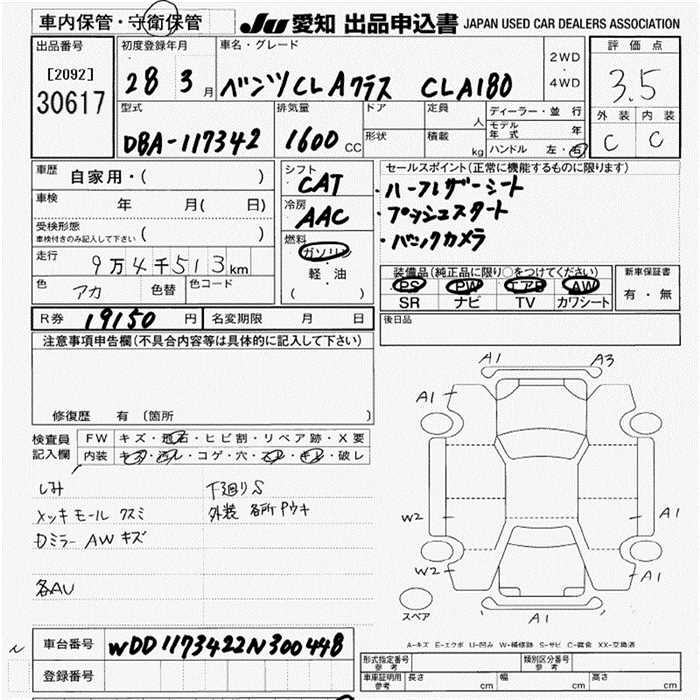 車内保管・守衛保管
JU愛知 出品申込書 JAPAN USED CAR DEALERS ASSOCIATION
出品番号
[2092]
30617
初度登録年月
28 3月
車名・グレード
ベンツCLAクラス CLA180
2WD
・
4WD
評価点
3.5
外装 内装
C C
型式
DBA-117342
排気量
1600 CC
ドア
形状
定員
人
積載
kg
ディーラー・並行
モデル年式 年
ハンドル 左・右
車歴
自家用・( )
車検 年 月( 日)
受検形態
車検付きのみ記入して下さい ( )
走行
9万4千513km
色
アカ
色替
色コード
シフト
CAT
冷房
AAC
燃料
ガソリン
・
軽・油
( )
セールスポイント(正常に機能するものに限ります)
・ハーフレザーシート
・プッシュスタート
・バックカメラ
装備品(純正品に限り○をつけてください)
PS PW エアB AW
SR ナビ TV カワシート
新車保証書
有・無
R券 19150円
名変期限 月 日
後日品
注意事項申告欄(不具合内容等は具体的に記入して下さい)
修復歴 有 (箇所 )
検査員
記入欄
FW キズ・飛石・ヒビ割・リペア跡・X要
内装 キズ・汚レ・コゲ・穴・スレ・キレ・破レ
シミ
メッキモール クスミ
Dミラー AW キズ
各AU
下廻りS
外装 各所Pウキ
A1 A3
A1
W2 A1
W2 A1
A1
スペア
A-キズ E-エクボ U-凹み W-補修跡 S-サビ C-腐食 XX-交換済
車台番号
WDD1173422N300448
登録番号
形式指定番号
参考
類別区分番号
参考
車庫証明用
参考
長さ cm 幅 cm 高さ cm